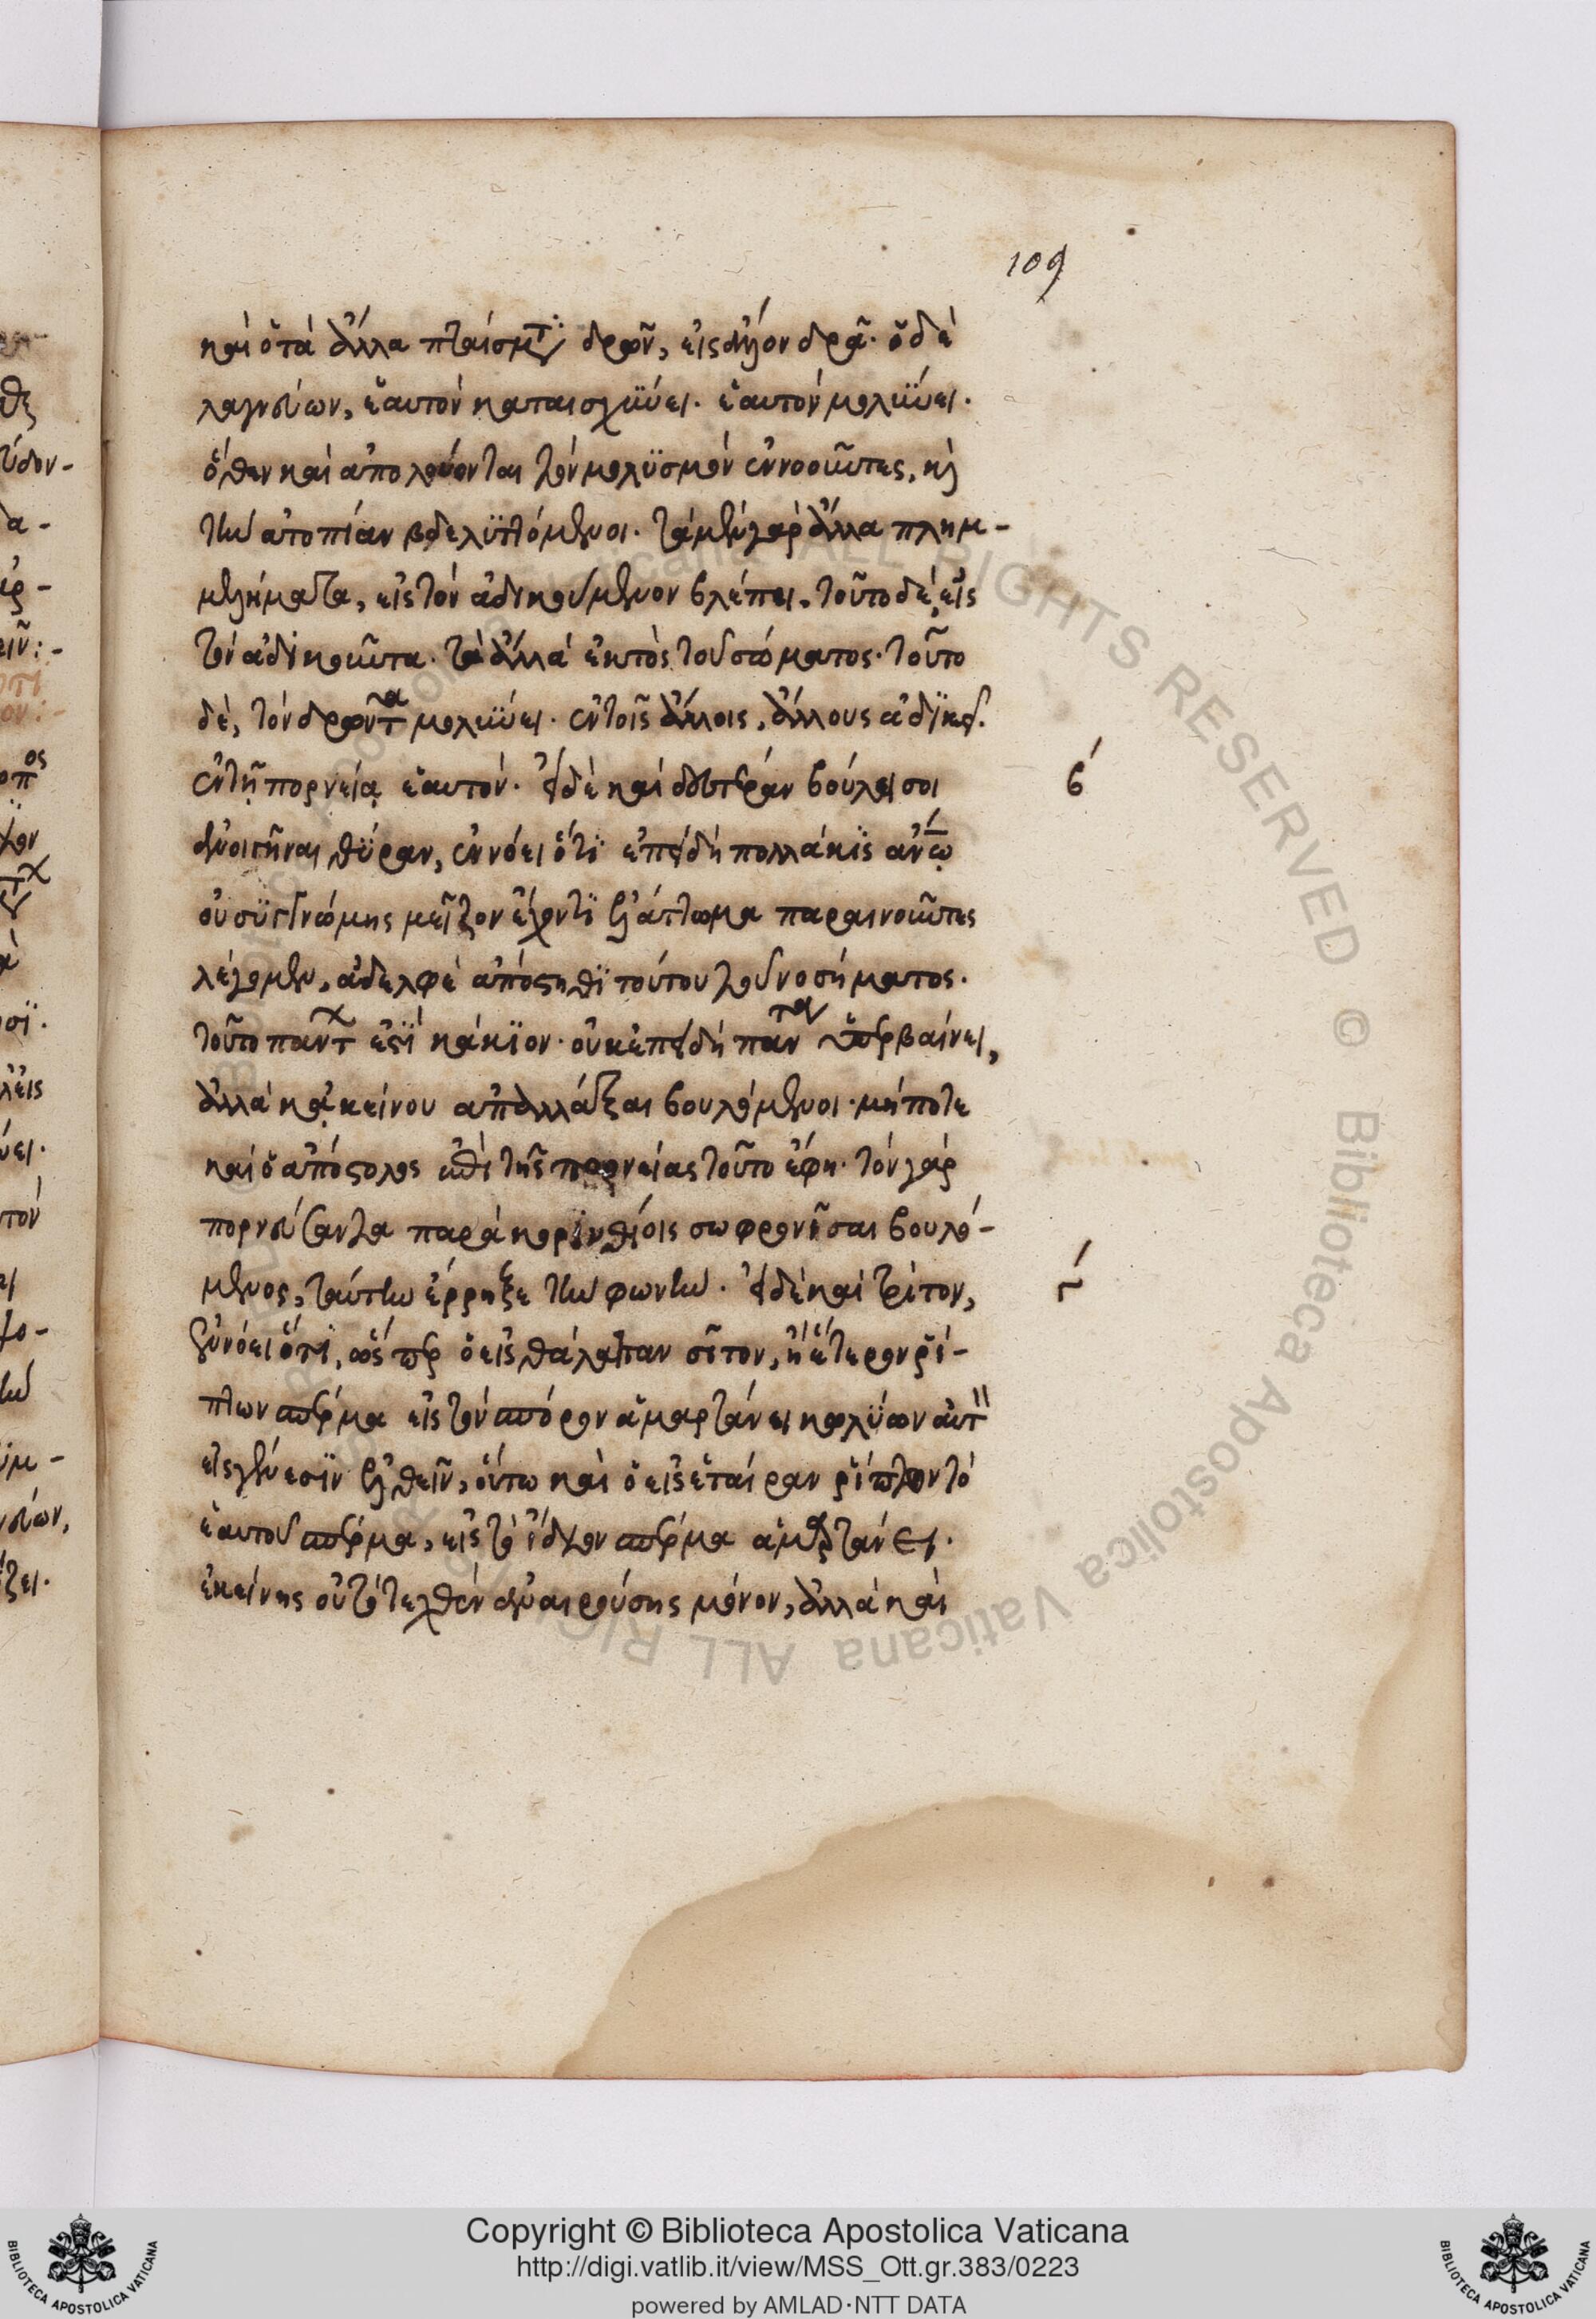 109
καὶ ὁ τὰ ἄλλα πταίσματα δρῶν, εἰς ἄλλον δρᾷ. ὁ δὲ
λαγνεύων, ἑαυτὸν καταισχύνει. ἑαυτὸν μολύνει.
ὅθεν καὶ ἀπολούονται τὸν μολυσμὸν ἐννοοῦντες, καὶ
τὴν ἀτοπίαν βδελυττόμενοι. τὰ μὲν γὰρ ἄλλα πλημ-
μελήματα, εἰς τὸν ἀδικούμενον βλέπει. τοῦτο δὲ, εἰς
τὸν ἀδικοῦντα. τὰ ἄλλα ἐκτὸς τοῦ σώματος. τοῦτο
δὲ, τὸν δρῶντα μολύνει. ἐν τοῖς ἄλλοις, ἄλλους ἀδικεῖ.
ἐν τῇ πορνείᾳ ἑαυτόν. εἰ δὲ καὶ δευτέραν βούλει σοι
β
ἀνοιγῆναι θύραν, ἐννόει ὅτι ἐπειδὴ πολλάκις ἀνω
οὐ συγγνώμης μεῖζον ἔχοντι ἐλάττωμα παραινοῦντες
λέγομεν, ἀδελφὲ ἀπόστηθι τούτου τοῦ νοσήματος.
τοῦτο παντ ἐστὶ κάκιον. οὐκ ἐπειδὴ πάντα ὑπερβαίνει,
ἀλλὰ κἀκείνου ἀπαλλάξαι βουλόμενοι. μήποτε
καὶ ὁ ἀπόστολος ἐπὶ τῆς πορνείας τοῦτο ἔφη. τὸν γὰρ
πορνεύσαντα παρὰ κορινθίοις σωφρονῆσαι βουλό-
μενος, ταύτην ἔρρηξε τὴν φωνήν. εἰ δὲ καὶ τρίτον,
γ
ἐννόει ὅτι, ὥσπερ ὁ εἰς θάλατταν σῖτον, ἢ ἕτερον ῥί-
πτων σπέρμα εἰς τὸν σπόρον ἁμαρτάνει κωλύων αὐτ
εἰς γένεσιν ἐλθεῖν, οὕτω καὶ ὁ εἰς ἑταίραν ῥίπτων τὸ
ἑαυτοῦ σπέρμα, εἰς τὸ ἴδιον σπέρμα ἁμαρτάνει.
ἐκείνης οὐ τὸ τεχθὲν ἀναιρούσης μόνον, ἀλλὰ καὶ
Copyright © Biblioteca Apostolica Vaticana
http://digi.vatlib.it/view/MSS_Ott.gr.383/0223
powered by AMLAD·NTT DATA